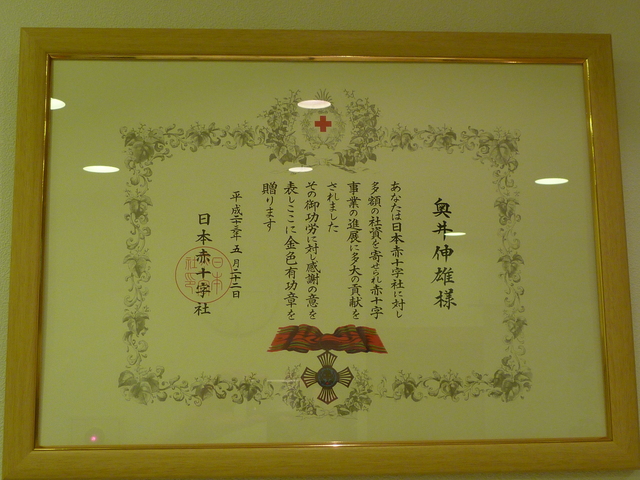 奥井伸雄様
あなたは日本赤十字社に対し
多額の社資を寄せられ赤十字
事業の進展に多大の貢献を
されました
その御功労に対し感謝の意を
表しここに金色有功章を
贈ります
五月二十二日
日本赤十字社